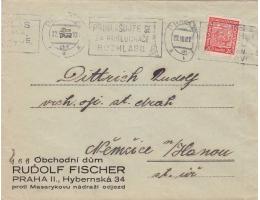 PŘIHLAŠUJTE SE
ZA POSLUCHAČE
ROZHLASU
Dittrich Rudolf
vrch. of. st. drah
Němčice n/Hanou
Obchodní dům
RUDOLF FISCHER
PRAHA II., Hybernská 34
proti Masarykovu nádraží odjezd